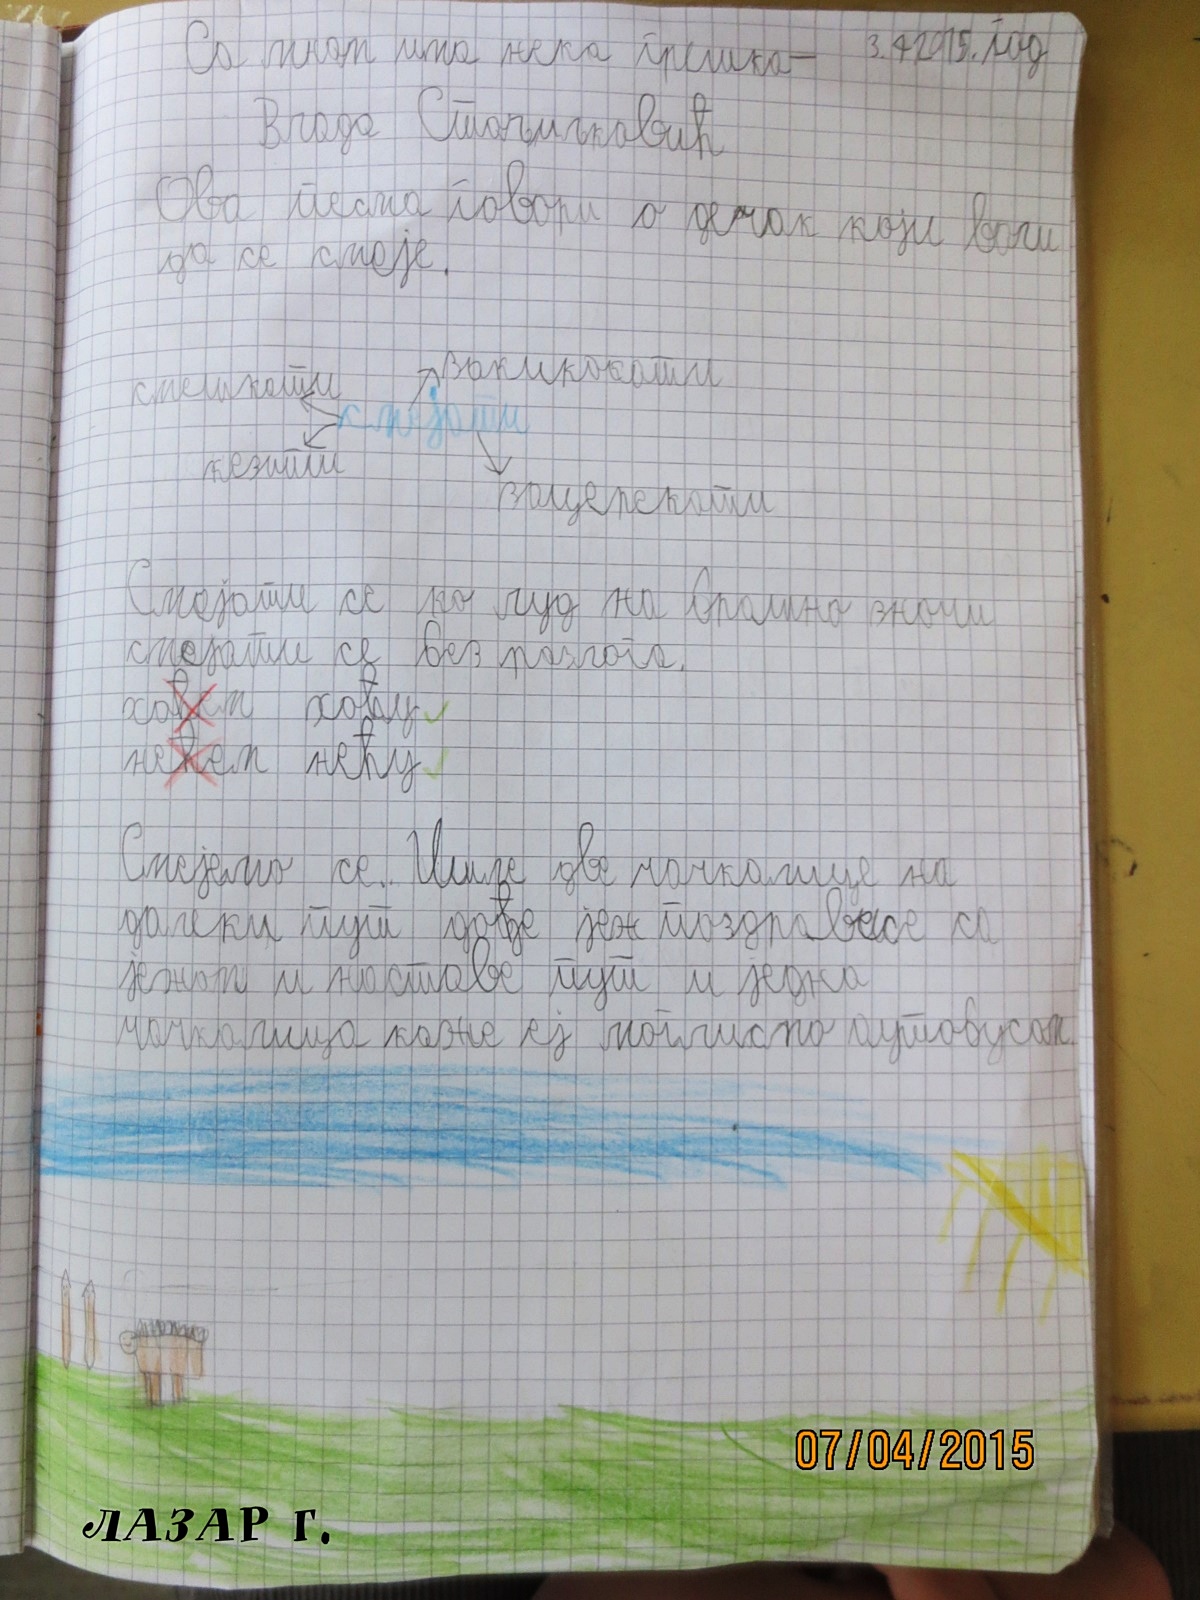 Са мном има нека грешка— 3.4.2015. год
Влада Стојиљковић
Ова песма говори о дечак који воли
да се смеје.
смешкати закикокати
смејати
кезити
зацерекати
Смејати се ко луд на брашно значи
смејати се без разлога.
хоћем хоћу
нећем нећу
Смејемо се. Ишле две чачкалице на
далеки пут дође јеж поздраве се са
јежом и наставе пут и једна
чачкалица каже еј могли смо аутобусом.
07/04/2015
ЛАЗАР Г.